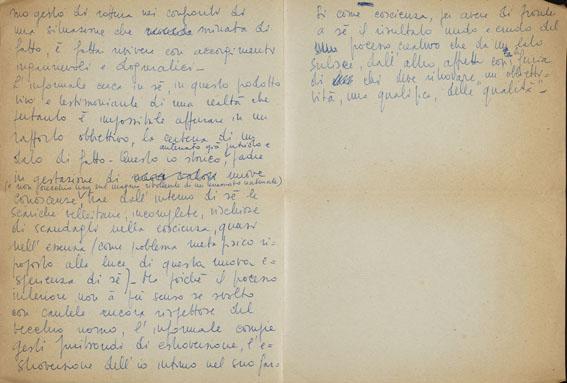 mo gesto di rottura nei confronti di
una situazione che minata di
fatto, è fatta vivere con accorgimenti
ingannevoli e dogmatici —
L'informale cerca in sè, in questo prodotto
vivo e testimoniante di una realtà che
soltanto è impossibile afferrare in un
rapporto obbiettivo, la certezza di un
antenato già putrido e
stato di fatto — Questo io storico, padre
in gestazione di nuove
(e non parecchio una sua magari ribollente di un umano naturale)
conoscenze, trae dall'interno di sè le
scariche velleitarie, incomplete, rischiose
di scandagli nella coscienza, quasi
nell'essenza (come problema metafisico ri-
proposto alla luce di questa nuova e-
sperienza di sè) — Ma poichè il processo
interiore non à più senso se svolto
con cautele ancora rispettose del
vecchio uomo, l'informale compie
gesti furibondi di estroversione, l'e-
stroversione dell'io intimo nel suo far-
si come coscienza, per avere di fronte
a sè il risultato nudo e crudo del
processo creativo che da un lato
subisce, dall'altro affretta con furia
di chi deve ritrovare un "obbietti-
vità, una qualifica, delle "qualità" —